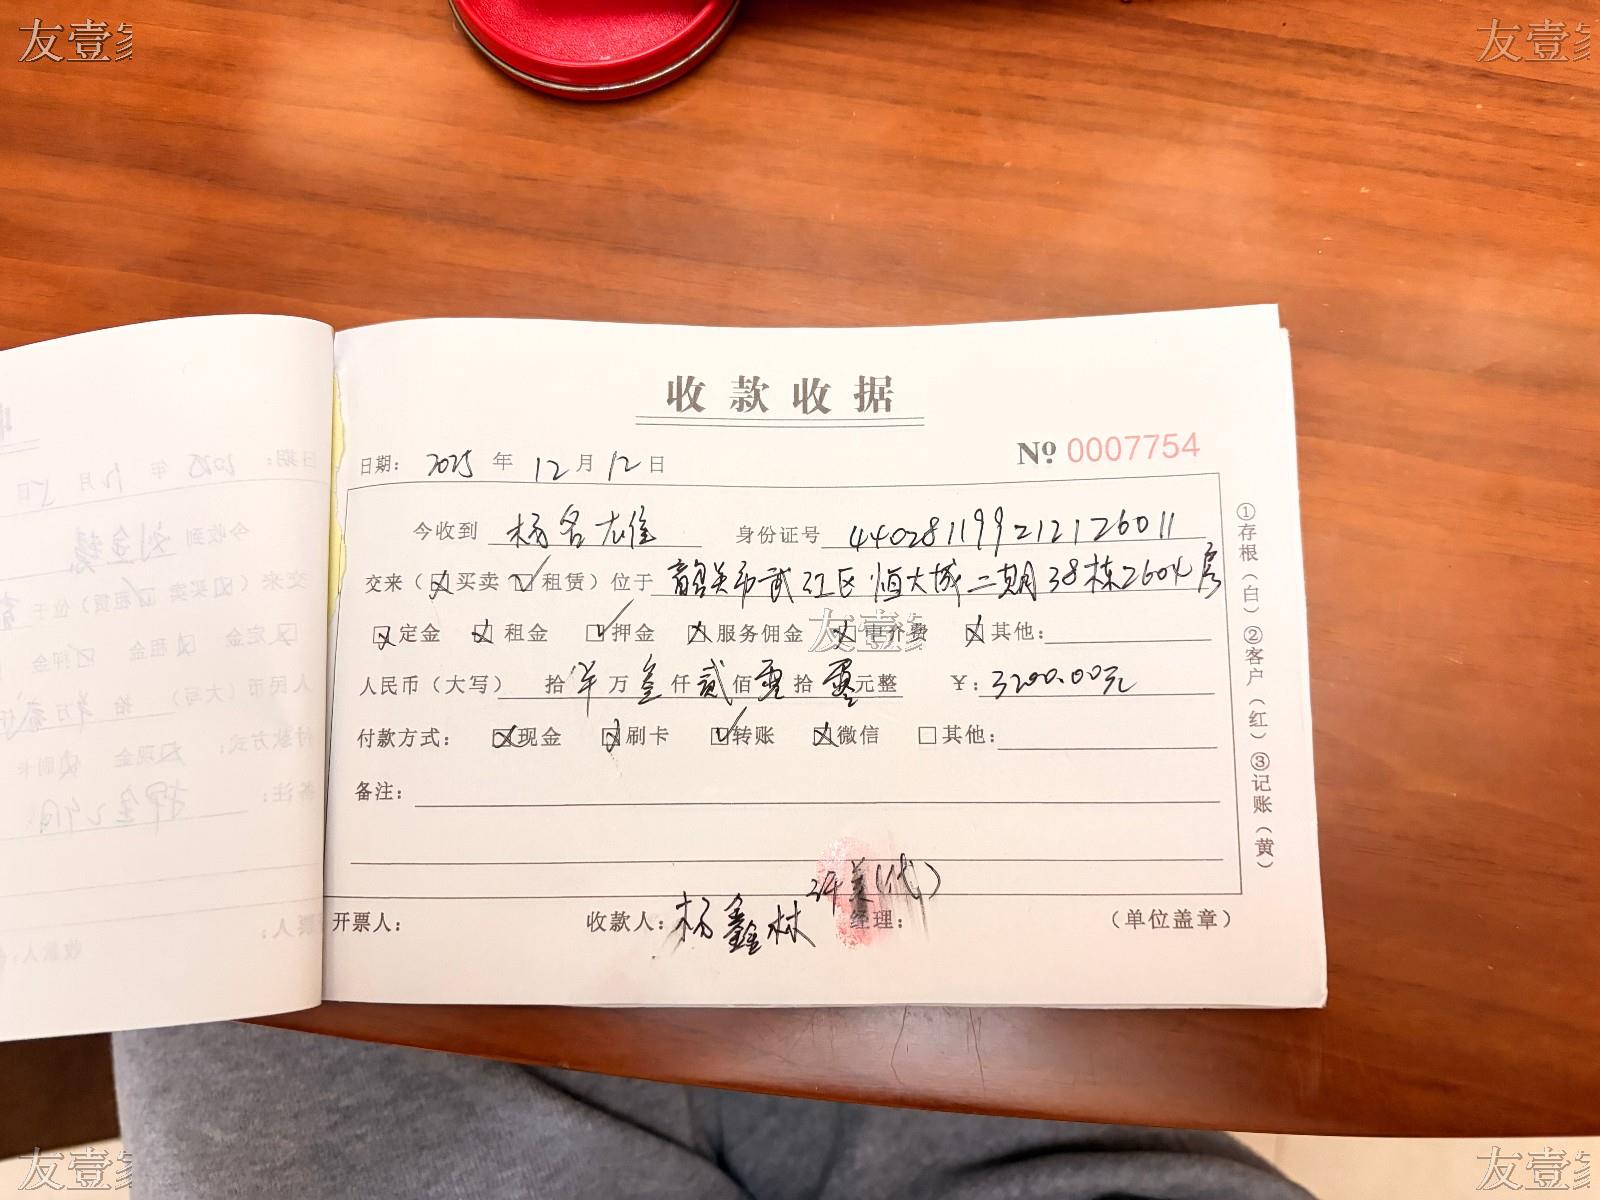 友壹家
友壹家
收款收据
日期： 2025 年 12 月 12 日
№ 0007754
今收到 杨名雄 身份证号 440281199212126011
交来（☒买卖 ☑租赁）位于 韶关市武江区恒大城二期38栋2604房
☒定金 ☒租金 ☑押金 ☒服务佣金 ☒中介费 ☒其他：
友壹家
人民币（大写） 拾 半 万 叁 仟 贰 佰 零 拾 零 元整 ￥：3200.00元
付款方式： ☒现金 ☒刷卡 ☑转账 ☒微信 □其他：
备注：
许美(代)
开票人： 收款人：杨鑫林 经理： （单位盖章）
①存根（白）②客户（红）③记账（黄）
日期： 2025 年 月 日
今收到 刘金
交来（☒买卖 ☑租赁）位于
定金 租金 押金
人民币（大写） 拾 万 仟
付款方式： 现金 刷卡
备注： 押金
收款人：
友壹家
友壹家